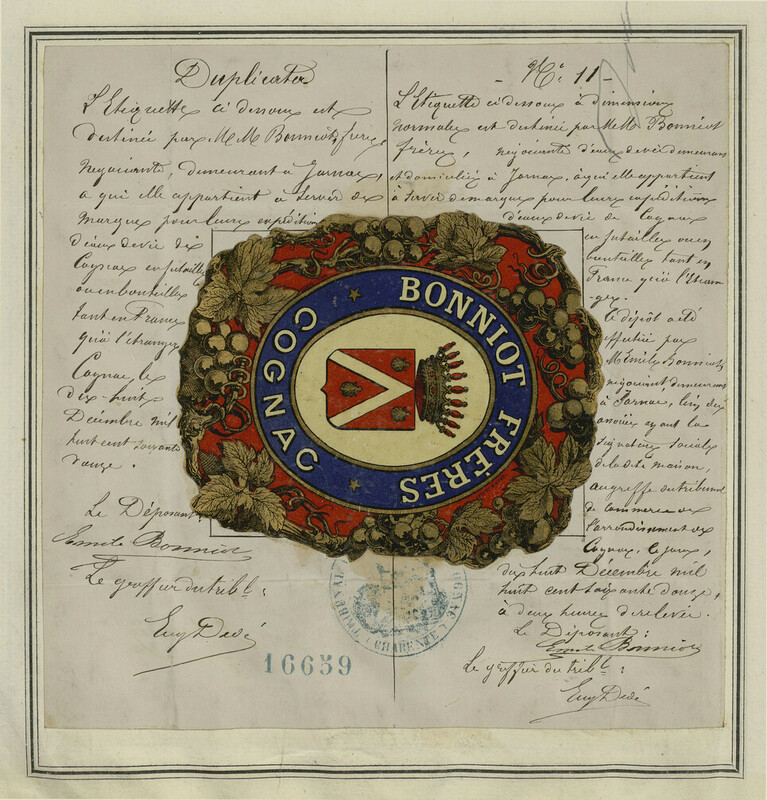 Duplicata
L'Etiquette ci dessous est
destinée par MM Bonniot frères,
négociants, demeurant à Jarnac,
a qui elle appartient a servir de
marque pour leurs expéditions
d'eaux de vie de
Cognac en futailles
ou en bouteilles
tant en France
qu'à l'étranger
Cognac, le
dix-huit
Décembre mil
huit cent soixante
douze.
Le Déposant
Emile Bonniot
Le greffier du tribl:
Eug Dedé
16659
- No. 11 -
L'Etiquette ci dessous à dimensions
normales est destinée par MM. Bonniot
frères, négociants d'eaux de vie demeurant
et domiciliés à Jarnac, à qui elle appartient
à servir de marque pour leurs expéditions
d'eaux de vie de Cognac
en futailles ou en
bouteilles tant en
France qu'à l'Etran-
ger.
Ce dépôt a été
effectué par
M. Emile Bonniot
négociant demeurant
à Jarnac, l'un des
associés ayant la
signature sociale
de la dite maison,
au greffe du tribunal
de commerce de
l'arrondissement de
Cognac, ce jour,
dix huit Décembre mil
huit cent soixante douze,
à deux heures de relevée.
Le Déposant:
Emile Bonniot
Le greffier du tribl:
Eug Dedé
BONNIOT FRÈRES
COGNAC
CHARENTE